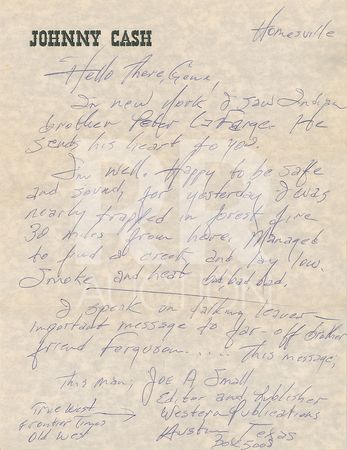 JOHNNY CASH
Homesville
Hello There, Gene,
In new York I saw Indian
brother Peter LaFarge. He
sends his heart to you.
I'm well. Happy to be safe
and sound, for yesterday I was
nearly trapped in forest fire
30 miles from here. Managed
to find a creek and lay low.
Smoke and heat bad, bad, bad.
I speak on talking leaves
important message to far-off brother
friend Ferguson..... This message;
This man, Joe A, Small,
Editor and Publisher
Western Publications
Austin Texas
Box 5003
True West
Frontier Times
Old West
RR
AUCTION